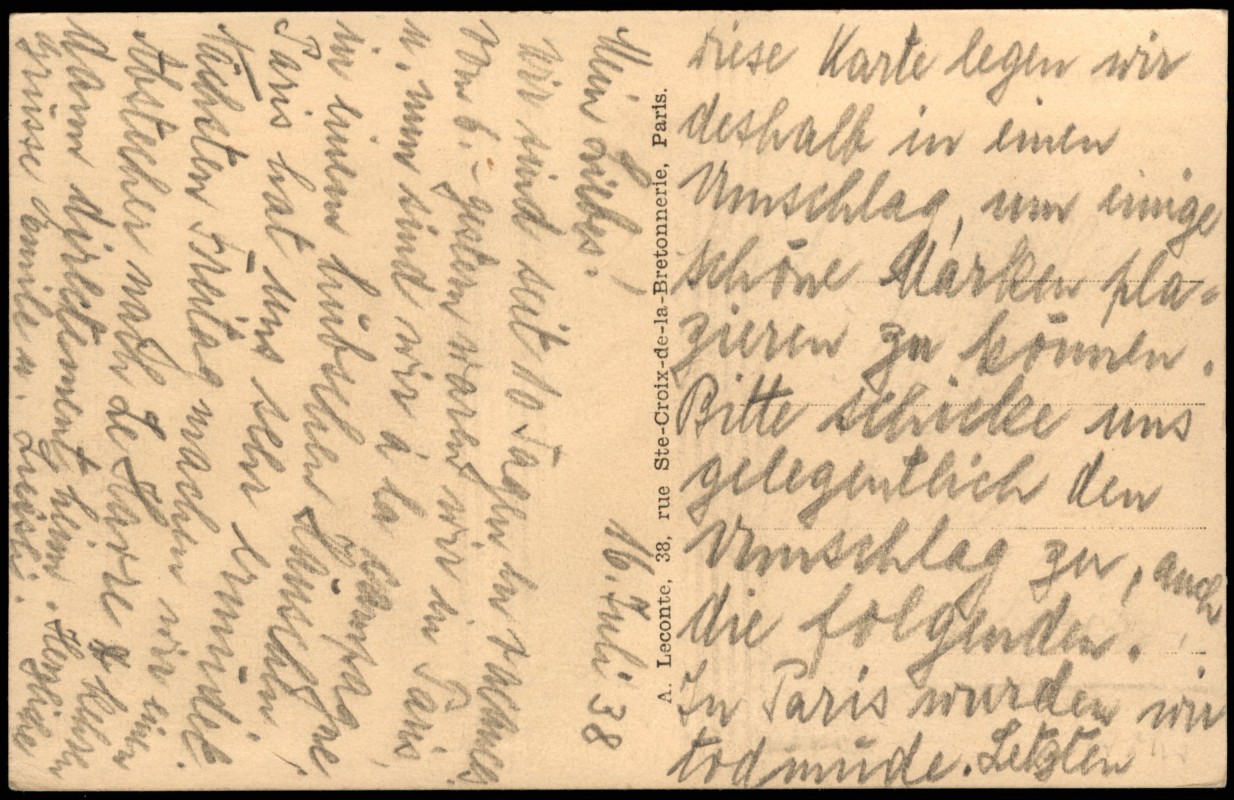 Mein Liebes! 16. Juli 38
Wir sind seit 10 Tagen in
vom 6. - gestern waren wir in Paris
u. nun sind wir à la campagne
in einem hübschen Häuschen.
Paris hat uns sehr ermüdet.
Nächsten Freitag machen wir einen
Abstecher nach Le Havre & kehren
dann directement heim. Herzliche
Grüsse u.
A. Leconte, 38, rue Ste-Croix-de-la-Bretonnerie, Paris.
Diese Karte legen wir
deshalb in einen
Umschlag, um einige
schöne Marken pla-
zieren zu können.
Bitte schicke uns
gelegentlich den
Umschlag zu, auch
die folgenden.
In Paris wurden wir
todmüde. Letzten